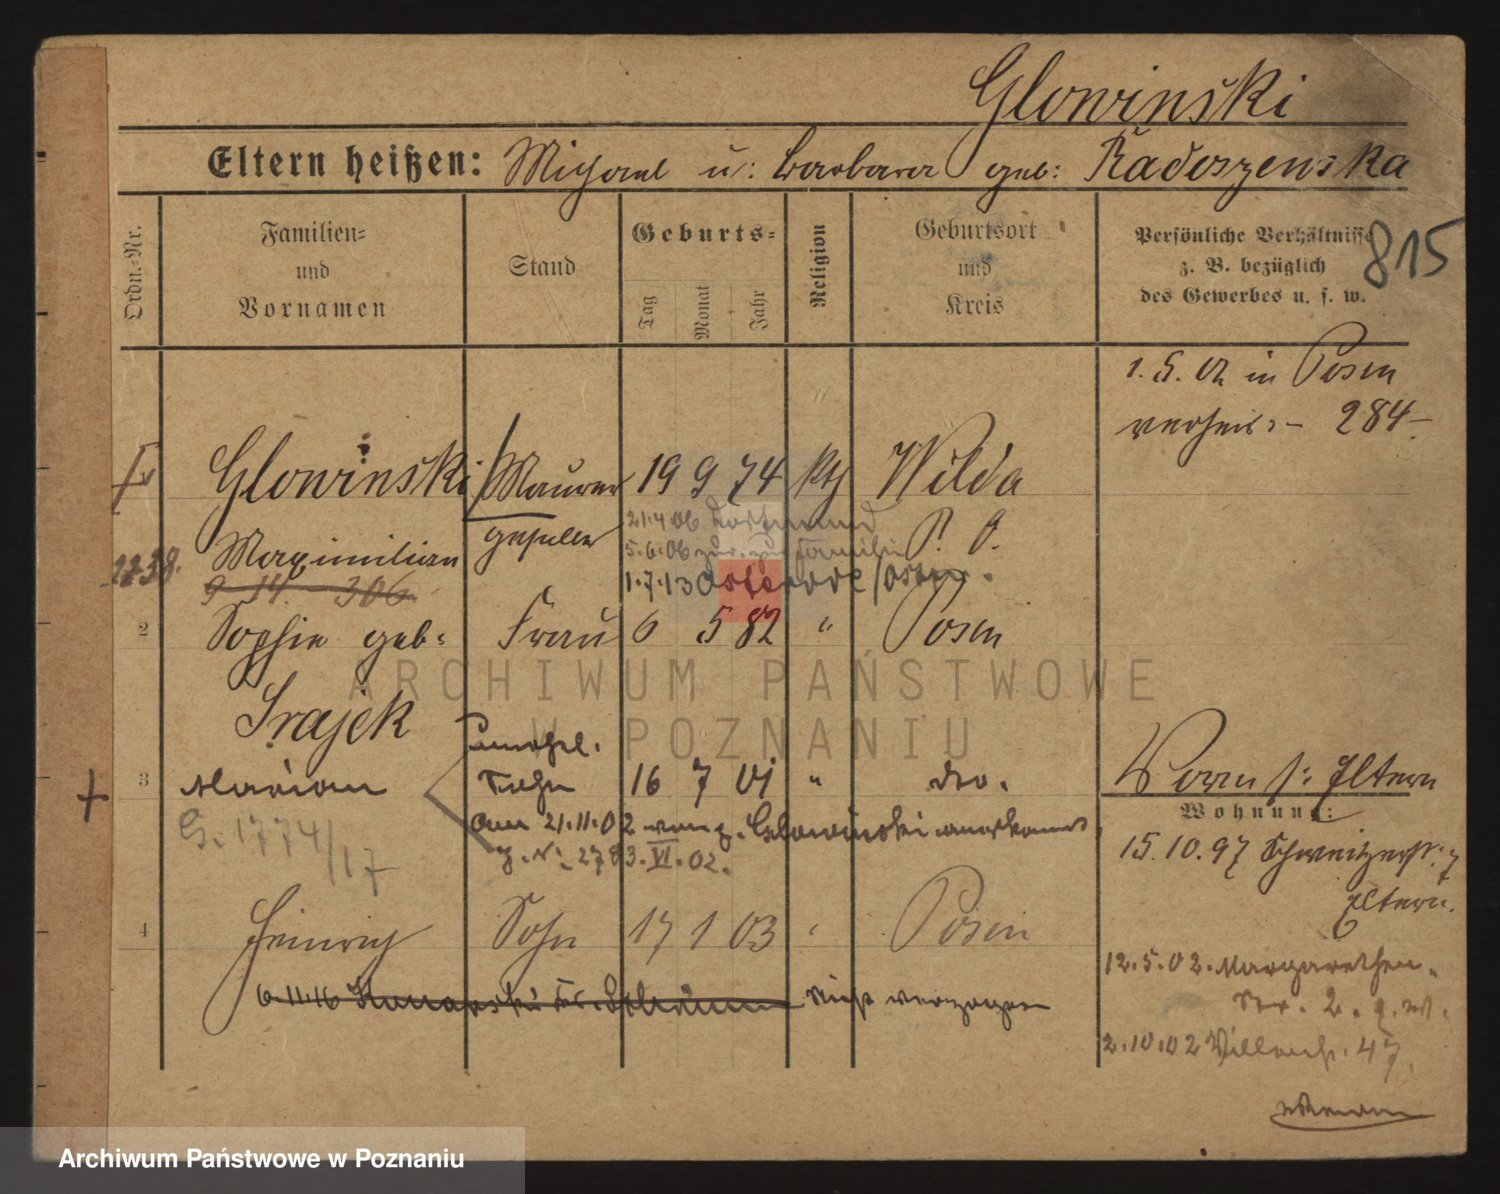 Glowinski
Eltern heißen: Michael u: Barbara geb: Radoszenska
Ordn.-Nr.
Familien- und Vornamen
Stand
Geburts-
Tag Monat Jahr
Religion
Geburtsort und Kreis
Persönliche Verhältnisse z. B. bezüglich des Gewerbes u. s. w.
815
1. 5. 02 in Posen
verheir: – 284 –
Glowinski Maurer 19 9 74 kth Wilda
21.4.06 Dortmund
geselle P. O.
Maximilian 5.6.06 zur. zur Familie
2238.
9 14 – 306
1.7.13 Osterode/Ostpr.
2 Sophie geb: Frau 6 5 82 " Posen
Srajek
unehel.
3 Marian Sohn 16 7 01 " do. Vorm s: Eltern
Wohnung:
G. 1774/17
am 21.11.02 von p. Glowinski anerkannt
J. N: 2783. VI. 02.
15.10.97 Schweitzerstr. 7
Eltern.
4 Heinrich Sohn 17 1 03 " Posen
12.5.02. Margarethen-
Str. 2. g. W.
6.11.16 nicht verzogen
2.10.02 47
ARCHIWUM PAŃSTWOWE
W POZNANIU
Archiwum Państwowe w Poznaniu